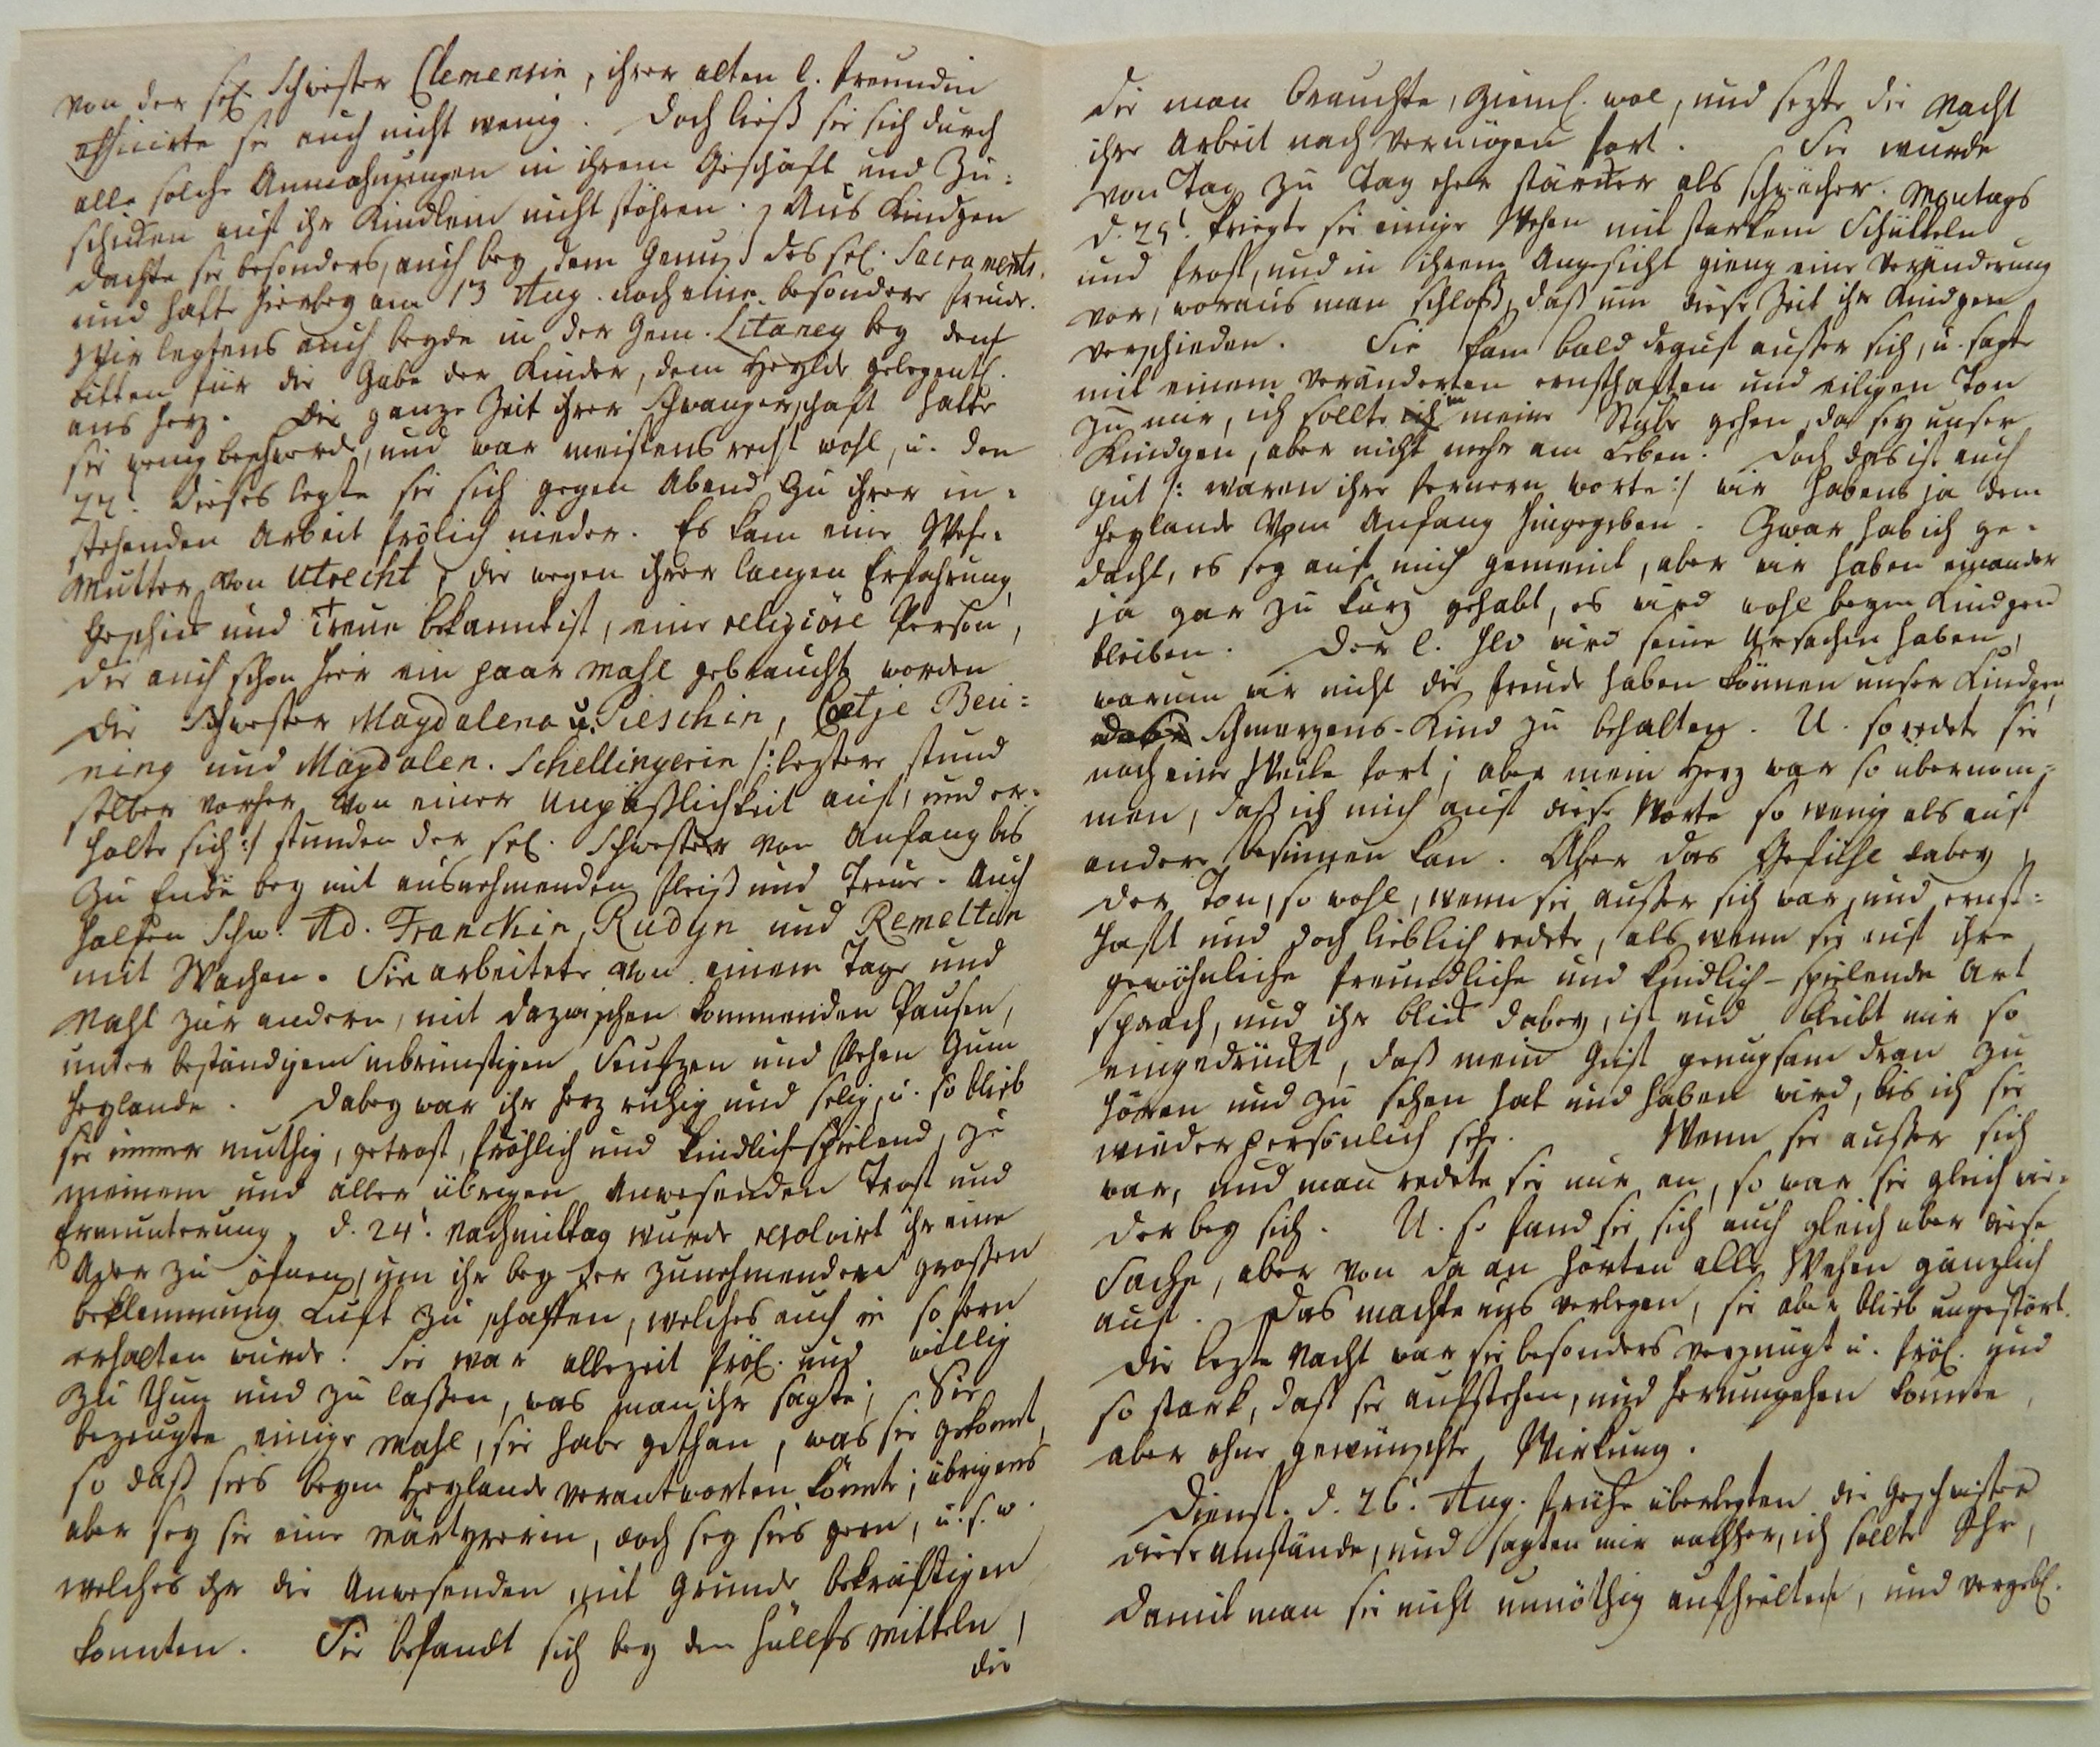 von der sel. Schwester Clemensin, ihrer alten l. Freundin
afficirte sie auch nicht wenig. Doch ließ sie sich durch
alle solche Anmahnungen in ihrem Geschäft und Zu-
schicken auf ihr Kindlein nicht stöhren. Aus Kindgen
dachte sie besonders, auch bey dem Genuß des hl. Sacraments,
und hatte hierbey am 13 Aug. noch eine besondere Freude.
Wir legtens auch beyde in der Gem. Litaney bey dem
bitten für die Gabe der Kinder, dem Heylde gelegentl.
ans Herz. Die ganze Zeit ihrer Schwangerschaft hatte
sie wenig beschwerde, und war meistens recht wohl, u. den
22t. dieses legte sie sich gegen Abend zu ihrer in-
stehenden Arbeit frölich nieder. Es kam eine Wehe-
Mutter von Utrecht, die wegen ihrer langen Erfahrung,
Geschick und Treue bekannt ist, eine religiöse Person,
die auch schon hier ein paar mahl gebraucht worden
Die Schwester Magdalena u. Pieschin, Cœtje Ben-
ning und Magdalen. Schellingerin /: leztere stund
selber vorher von einer Unpäßlichkeit auf, und er-
holte sich :/ stunden der sel. Schwester von Anfang bis
zu Ende bey mit ausnehmenden Fleiß und Treue. Auch
halfen Schw. Ad. Franckin, Rudyn und Remeltan
mit Wachen. Sie arbeitete von einem Tage und
Naht zur andern, mit dazwischen kommenden Pausen,
unter beständigem inbrünstigen Seufzen und flehen zum
Heylande. Dabey war ihr Herz ruhig und selig, u. so blieb
sie immer muthig, getrost, fröhlich und kindlich-spielend, zu
meinem und aller übrigen Anwesenden Trost und
Ermunterung. d. 24t. Nachmittag wurde resolvirt ihr eine
Ader zu öfnen, um ihr bey der zunehmenden grossen
beklemmung Luft zu schaffen, welches auch in so fern
erhalten wurde. Sie war allezeit fröl. und willig
zu thun und zu lassen, was man ihr sagte; Sie
bezeugte einige mahl, sie habe gethan, was sie gekonnt,
so daß sies beym Heylande verantworten könnte; übrigens
aber sey sie eine Märtyrerin, doch sey sies gern, u. s. w.
welches ihr die Anwesenden mit Grunde bekräftigen
konnten. Sie befandt sich bey den hülfs mitteln,
die
die man brauchte, zieml. wol, und sezte die Nacht
ihre Arbeit nach vermögen fort. Sie wurde
von Tag zu Tag eher stärcker als schwächer. Montags
d. 25t. kriegte sie einige Wehen mit starkem Schütteln
und Frost, und in ihrem Angesicht gieng eine Veränderung
vor, woraus man schloß, daß um diese Zeit ihr Kindgen
verschieden. Sie kam bald drauf ausser sich, u. sagte
mit einem veränderten ernsthaften und eiligen Ton
zu mir, ich sollte in meine Stube gehen, da sey unser
Kindgen, aber nicht mehr am Leben. Doch das ist auch
gut /: waren ihre fernern worte :/ wir habens ja dem
Heylande vom Anfang hingegeben. Zwar hab ich ge-
dacht, es sey auf mich gemeint, aber wir haben einander
ja gar zu kurz gehabt, es wird wohl beym Kindgen
bleiben. Der l. Hld wird seine Ursachen haben,
warum wir nicht die Freude haben können unser Kindgen,
Schmerzens-Kind zu behalten. U. so redete sie
noch eine Weile fort; aber mein Herz war so übernom-
men, daß ich mich auf diese Worte so wenig als auf
andere besinnen kan. Aber das Gefühl dabey,
der Ton, so wohl, wenn sie ausser sich war, und ernst-
haft und doch lieblich redete, als wenn sie auf ihre
gewöhnliche freundliche und kindlich-spielende Art
sprach, und ihr blick dabey, ist und bleibt mir so
eingedrückt, daß mein Geist genugsam dran zu
hören und zu sehen hat und haben wird, bis ich sie
wieder persönlich sehe. Wenn sie ausser sich
war, und man redete sie nur an, so war sie gleich wie-
der bey sich. U. so fand sie sich auch gleich über diese
Sache, aber von da an hörten alle Wehen gänzlich
auf. Das machte uns verlegen, sie aber blieb ungestört.
Die lezte Nacht war sie besonders vergnügt u. fröl. und
so stark, daß sie aufstehen, und herumgehen konnte,
aber ohne gewünschte Wirkung.
Dienst. d. 26t. Aug. frühe überlegten die Geschwister
diese Umstände, und sagten mir nachher, ich sollte Ihr,
damit man sie nicht unnöthig aufhielte, und vergebl.